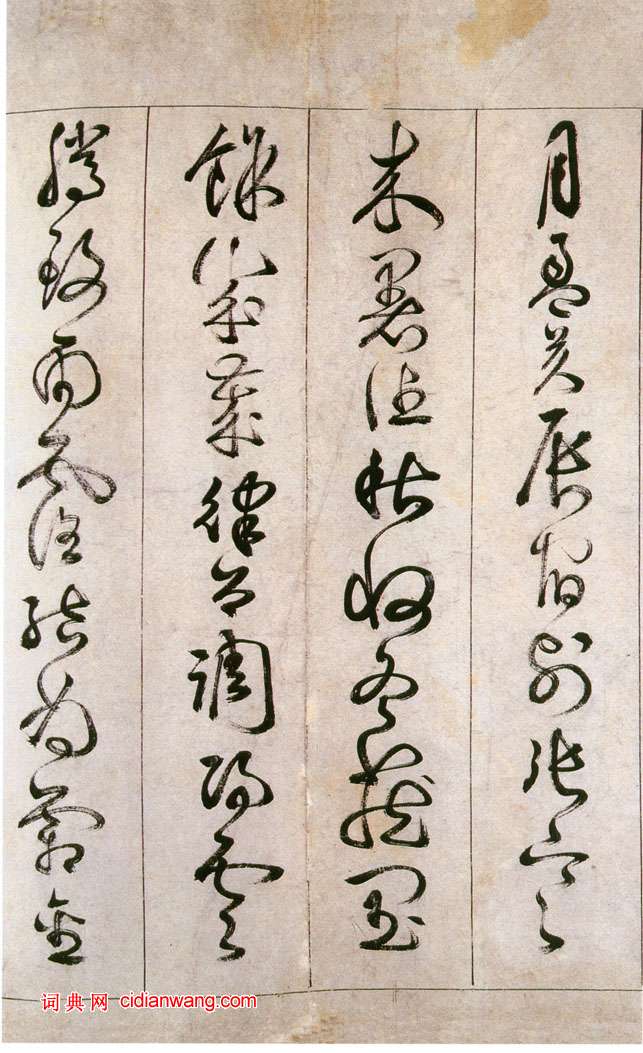 月盈昃辰宿列張寒
來暑往秋收冬藏閏
餘成歲律呂調陽雲
騰致雨露結為霜金
词典网 cidianwang.com